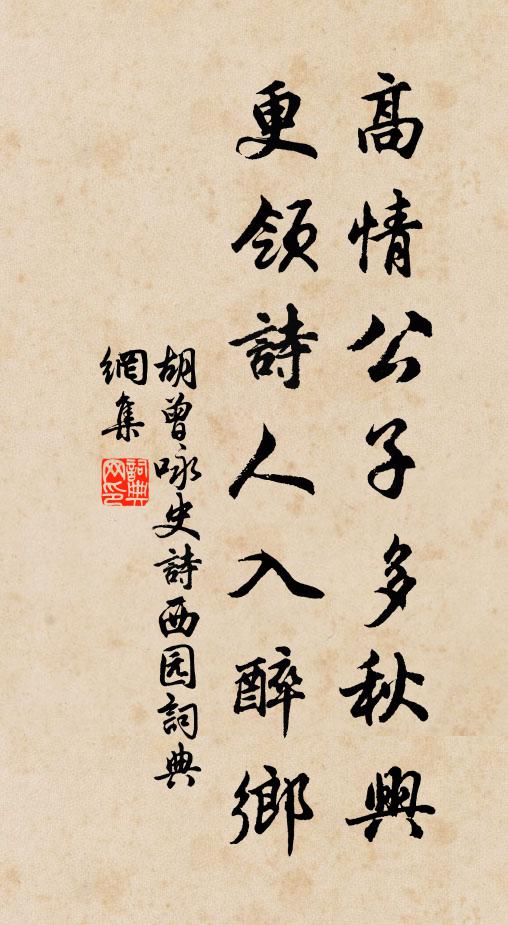 高情公子多秋興
更領詩人入醉鄉
胡曾咏史詩西园詞典
網集
詞典網印